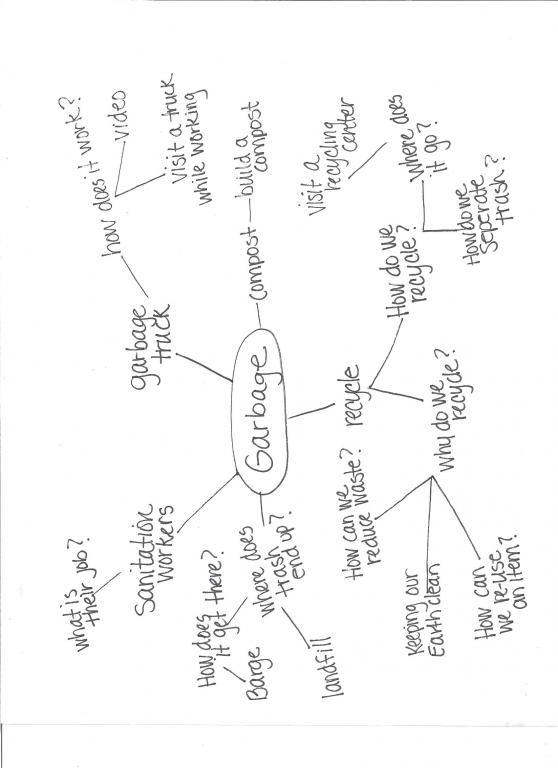 what is
their job?
Sanitation
workers
garbage
truck
how does it work?
video
visit a truck
while working
Garbage
compost
build a
compost
where does
trash
end up?
How does
it get there?
Barge
landfill
recycle
How do we
recycle?
visit a
recycling
center
Where does
it go?
How do we
seperate
trash?
Why do we
recycle?
How can we
reduce waste?
Keeping our
Earth clean
How can
we re-use
an item?